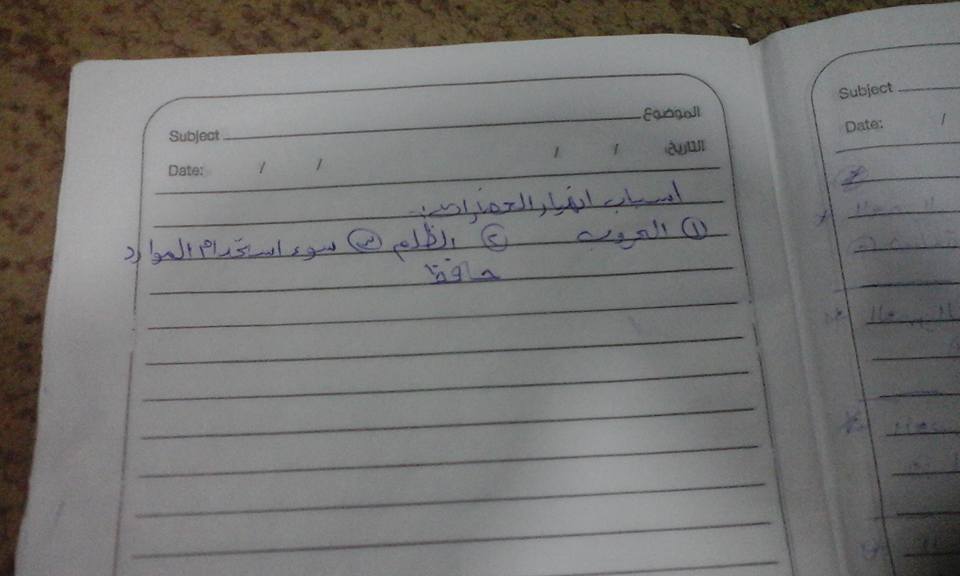 Subject الموضوع
Date: / / / / التاريخ:
اسباب انهيار الحضارات:
١ الحروب ٢ الظلم ٣ سوء استخدام الموارد
حافظ
Subject
Date: /